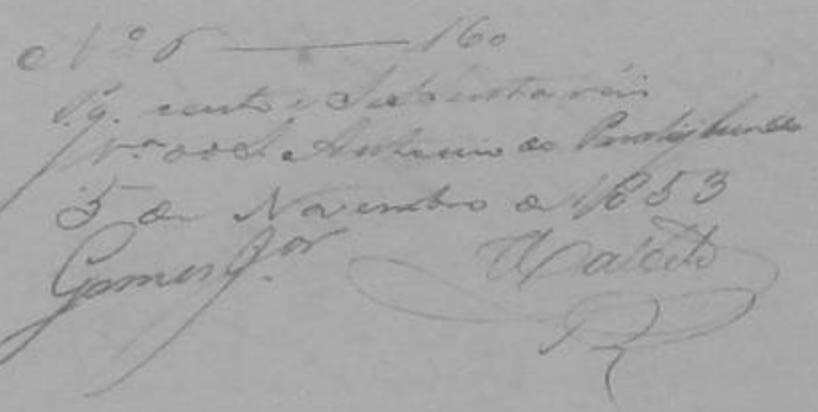 Nº 6 — 160
Pg. cento e Sessenta réis
Vª de S. Antonio do
5 de Novembro de 1853
Gomes Jor